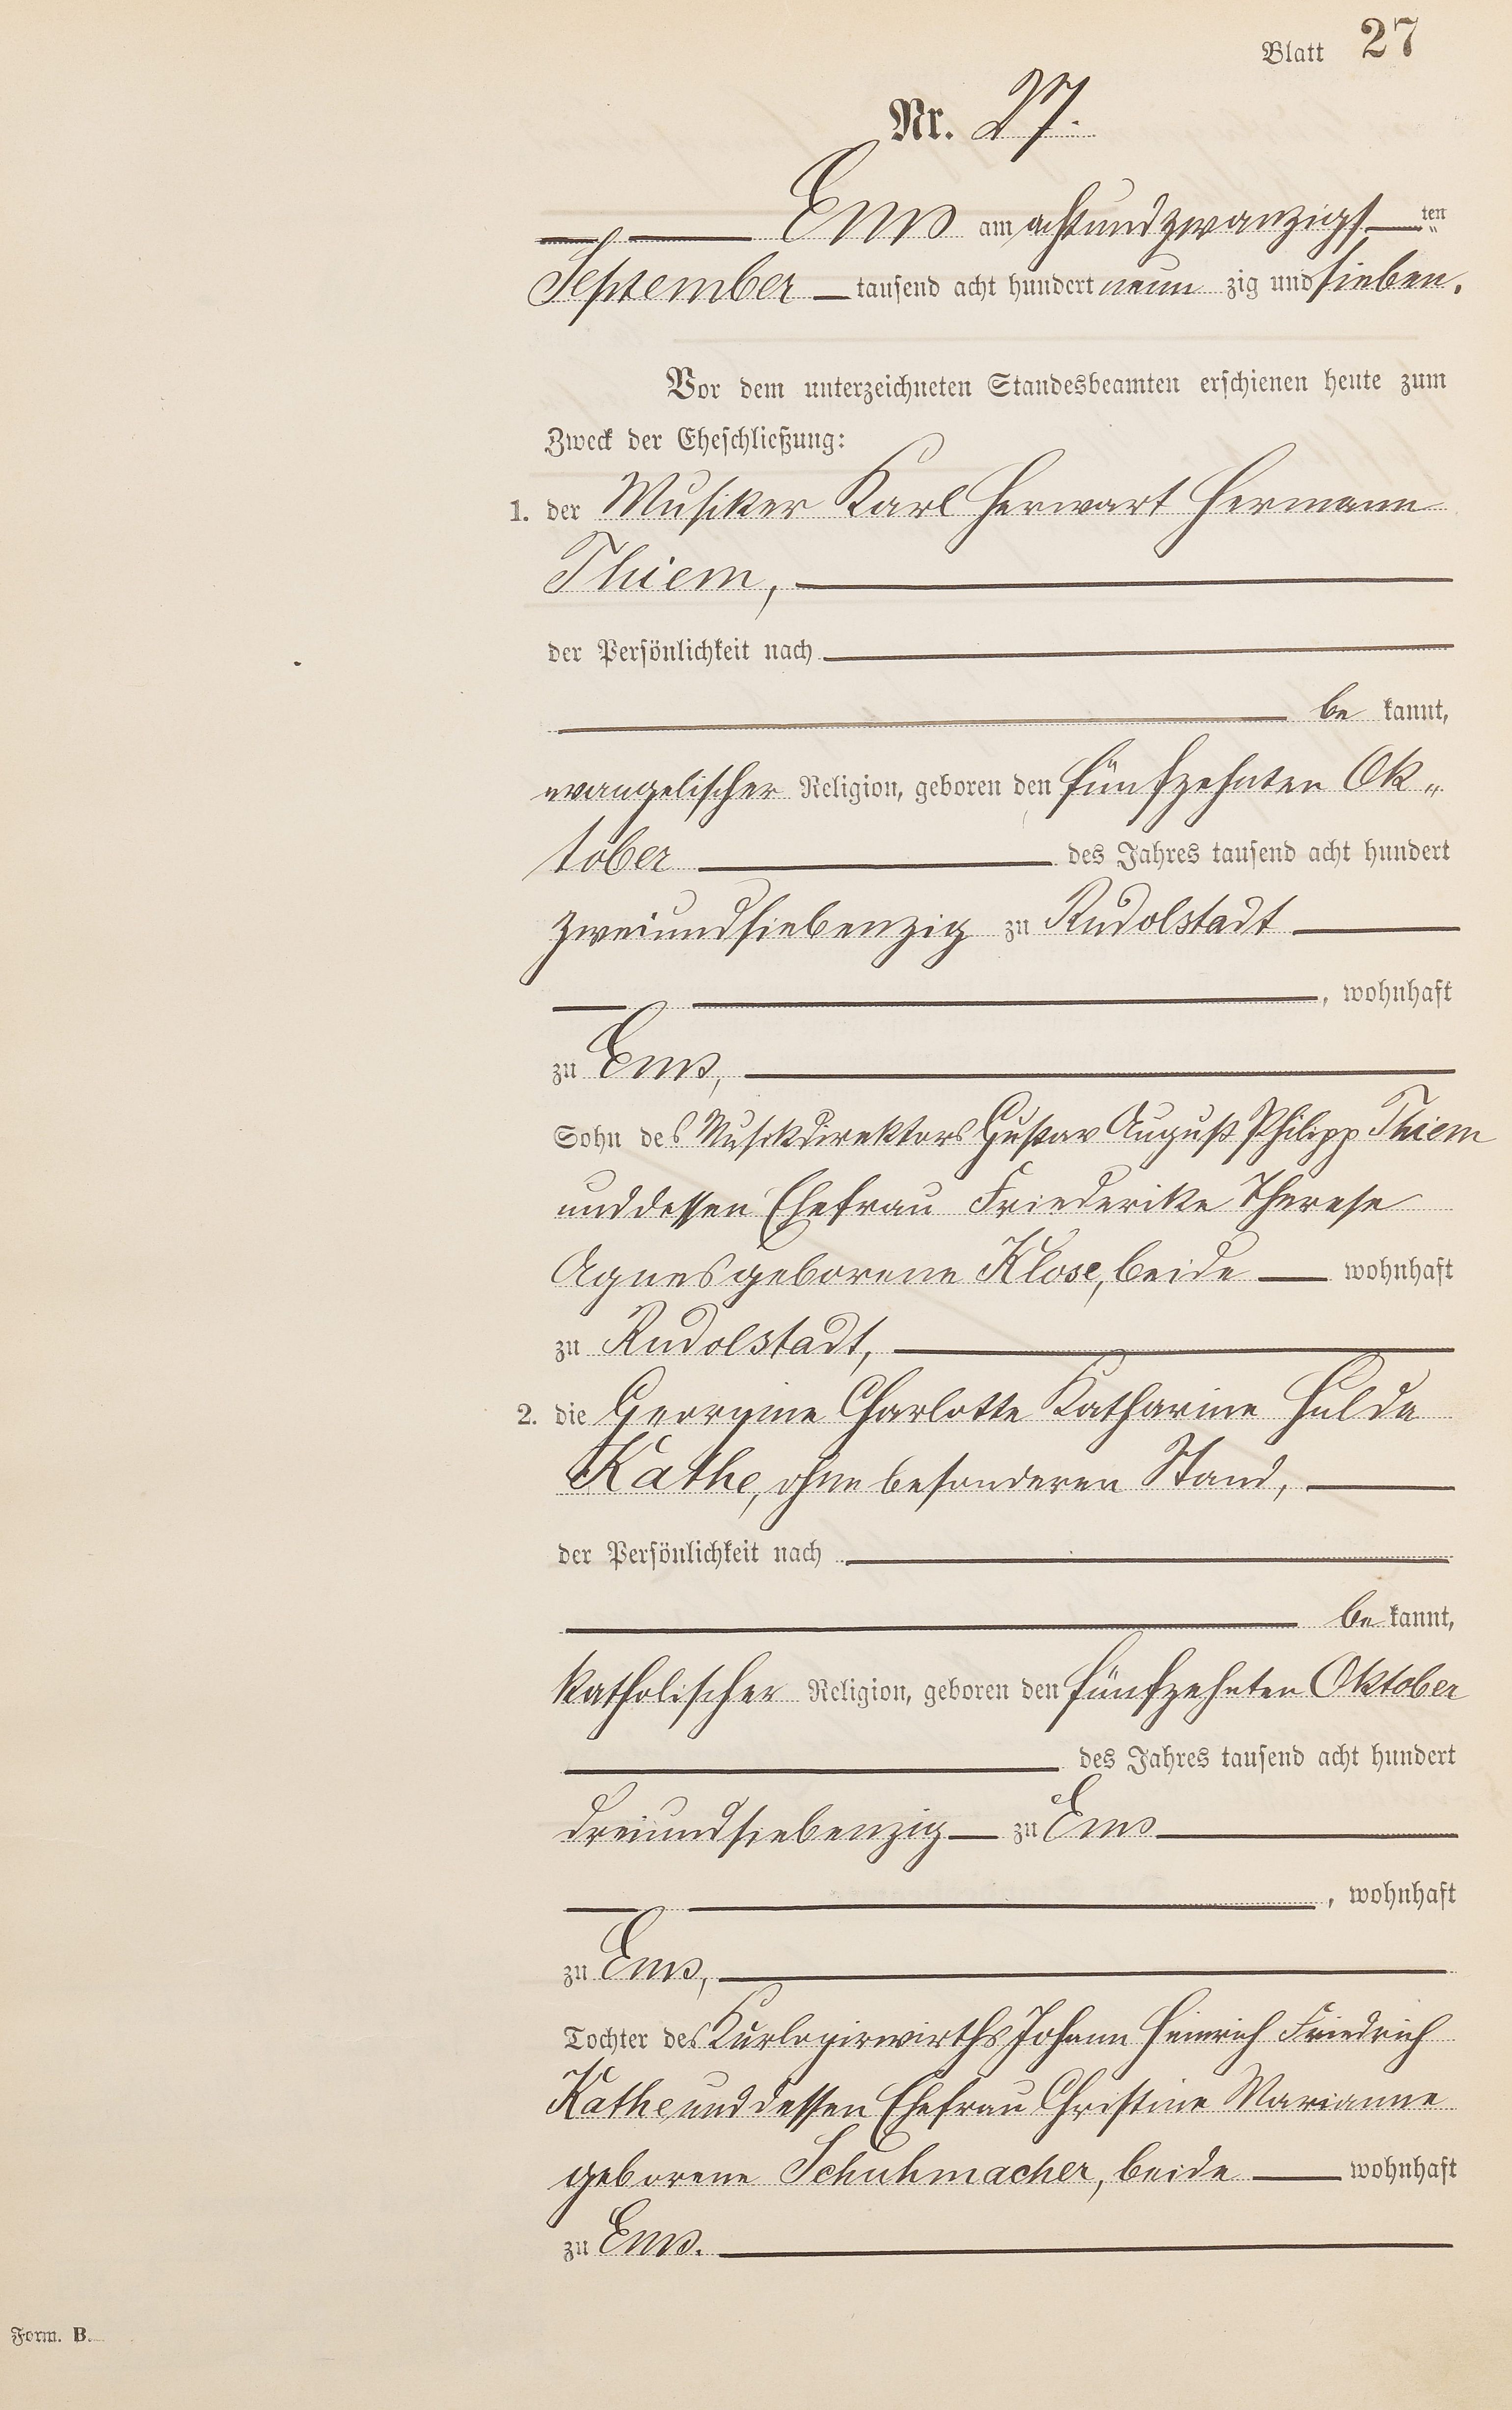 Blatt 27
Nr. 27.
Ems am achtundzwanzigsten
September tausend acht hundert neun zig und sieben.
Vor dem unterzeichneten Standesbeamten erschienen heute zum
Zweck der Eheschließung:
1. der Musiker Karl Herwart Hermann
Thiem,
der Persönlichkeit nach
be kannt,
evangelischer Religion, geboren den fünfzehnten Ok„
tober des Jahres tausend acht hundert
zweiundsiebenzig zu Rudolstadt
, wohnhaft
zu Ems,
Sohn des Musikdirektors Gustav August Philipp Thiem
und dessen Ehefrau Friederike Therese
Agnes geborene Klose, beide wohnhaft
zu Rudolstadt,
2. die Georgine Charlotte Katharine Hulda
Kathe, ohne besonderen Stand,
der Persönlichkeit nach
be kannt,
katholischer Religion, geboren den fünfzehnten Oktober
des Jahres tausend acht hundert
dreiundsiebenzig zu Ems
, wohnhaft
zu Ems,
Tochter des Kurlogirwirths Johann Heinrich Friedrich
Kathe und dessen Ehefrau Christine Marianne
geborene Schuhmacher, beide wohnhaft
zu Ems.
Form. B.